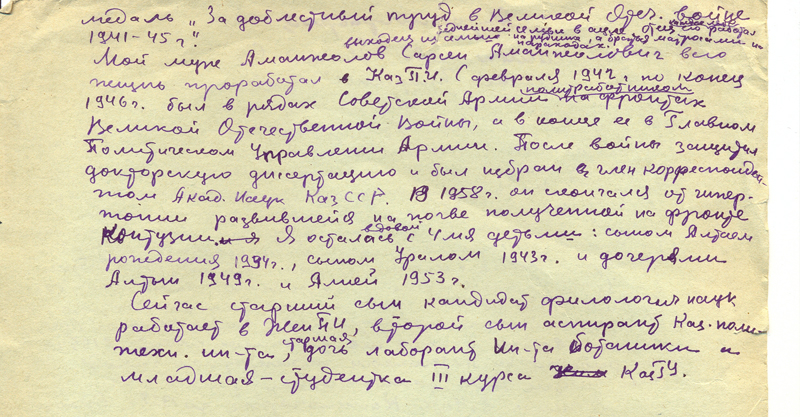 медаль „За доблестный труд в Великой Отеч. войне
1941-45 г."
выходец из семьи беднейшей семьи в ауле отец его работал
а братья матросами на пароходах.
Мой муж Аманжолов Сарсен Аманжолович всю
жизнь проработал в КазПИ. (февраля 1942 г. по конец
1946 г. был в рядах Советской Армии политработником на фронтах
Великой Отечественной Войны, а в конце ее в Главном
Политическом Управлении Армии. После войны защитил
докторскую дисертацию и был избран в член корреспонден-
том Акад. Наук Каз ССР. В 1958 г. он скончался от гипер-
тонии развившейся на почве полученной на фронте
контузии. Я осталась вдовой с 4мя детьми: сыном Алтаем
рождения 1934 г., сыном Уралом 1943 г. и дочерями
Алтын 1949 г. и Алией 1953 г.
Сейчас старший сын кандидат филологич наук
работает в ЖенПИ, второй сын аспирант Каз. поли-
техн. ин-та, старшая дочь лаборант Ин-та Ботаники а
младшая - студентка III курса КазГУ.